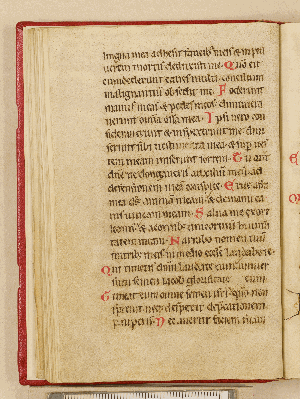 lingua mea adhesit faucibus meis & in pul
uerem mortis deduxisti me. Quo
circumdederunt canes multi. concilium
malignantiũ obsedit me. Foderunt
manus meas & pedes meos. dinumera
uerunt omnia ossa mea. Ipsi uero con
siderauerunt & inspexerunt me. diui
serunt sibi uestimenta mea. & sup ues
tem meam miserunt sortem. Tu aut
dñe ne elongaueris auxiliũ tuũ. ad
defensionem meã conspice. Erue
ds animã meam. & de manu ca
nis unicam meam. Salua me ex ore
leonis. & a cornibs unicorniũ humili
tatem meam. Narrabo nomen tuũ
fratribs meis in medio eccłe laudabo te.
Qui timetis dñm laudate eum. uniuer
sum semen iacob glorificate eum.
Timeat eum omne semen isrł. qm̃ non
spreuit neq; despexit deprecationem
pauperis. Nec auertit faciem suam